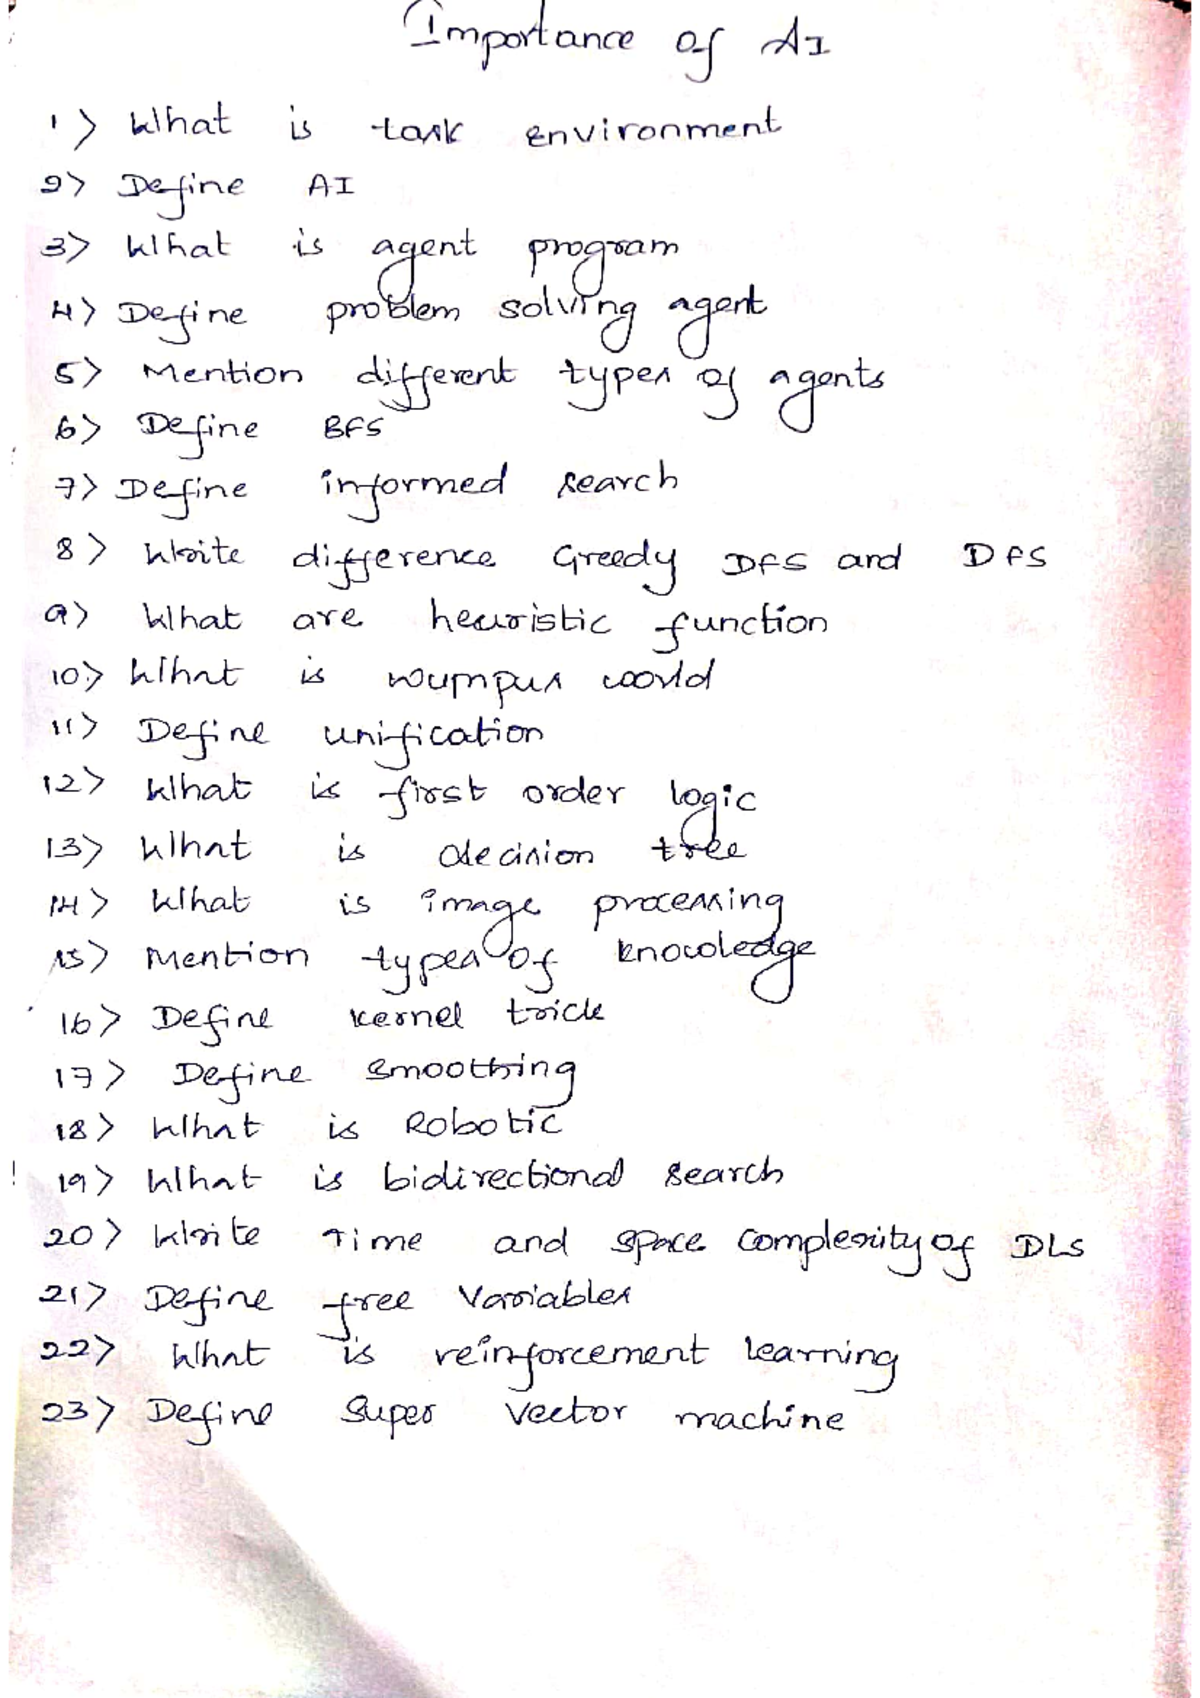 Importance of AI
1> What is task environment
2> Define AI
3> What is agent program
4> Define problem solving agent
5> Mention different types of agents
6> Define BFS
7> Define informed search
8> Write difference Greedy DFS and DFS
9> What are heuristic function
10> What is wumpus world
11> Define unification
12> What is first order logic
13> What is decision tree
14> What is image processing
15> Mention types of knowledge
16> Define kernel trick
17> Define smoothing
18> What is Robotic
19> What is bidirectional search
20> Write Time and space complexity of DLS
21> Define free Variables
22> What is reinforcement learning
23> Define Super Vector machine